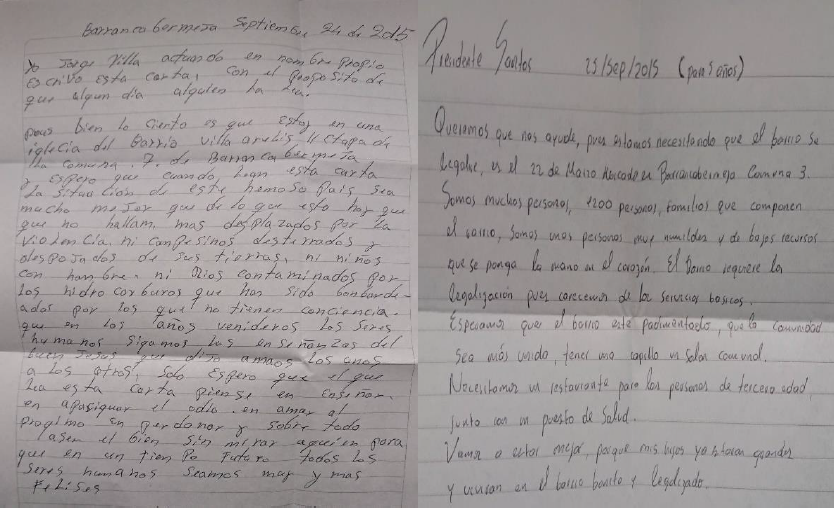 Barrancabermeja Septiembre 24 de 2015
Yo Jorge Villa actuando en nombre propio
Escribo esta carta, con el proposito de
que algun dia alguien la lea.
pues bien lo cierto es que estoy en una
iglecia del Barrio Villa arelis II etapa de
la comuna .7. de Barrancabermeja
y Espero que cuando lean esta carta
La situacion de este hermoso pais sea
mucho mejor que de lo que esto hoy que
que no hallam mas desplazados por la
violencia, ni canpesinos desterrados y
despojados de sus tierras, ni niños
con hambre. ni Rios contaminados por
los hidrocarburos que han sido bonbarde-
ados por los que no tienen conciencia.
que en los años venideros los seres
humanos sigamos las enseñanzas del
buen Jesus que dijo amaos los unos
a los otros, solo Espero que el que
lea esta carta piense en enseñar.
en apasiguar el odio. en amar al
progimo en perdonar y sobre todo
aser el bien sin mirar aquien para
que en un tienpo Futuro todos los
Seres humanos Seamos muy y mas
Felises
Presidente Santos 25/Sep/2015 (para 5 años)
Queremos que nos ayude, pues estamos necesitando que el barrio se
legalice, es el 22 de Marzo ubicado en Barrancabermeja Comuna 3.
Somos muchas personas, 1200 personas, familias que componen
el barrio, somos unas personas muy humildes y de bajos recursos
que se ponga la mano en el corazón. El barrio requiere la
legalización pues carecemos de los servicios basicos.
Esperamos que el barrio este pavimentado, que la comunidad
sea más unida, tener una capilla un salon comunal.
Necesitamos un restaurante para las personas de tercera edad,
junto con un puesto de Salud.
Vamos a estar mejor, porque mis hijos ya estaran grandes
y viviran en el barrio bonito y legalizado.